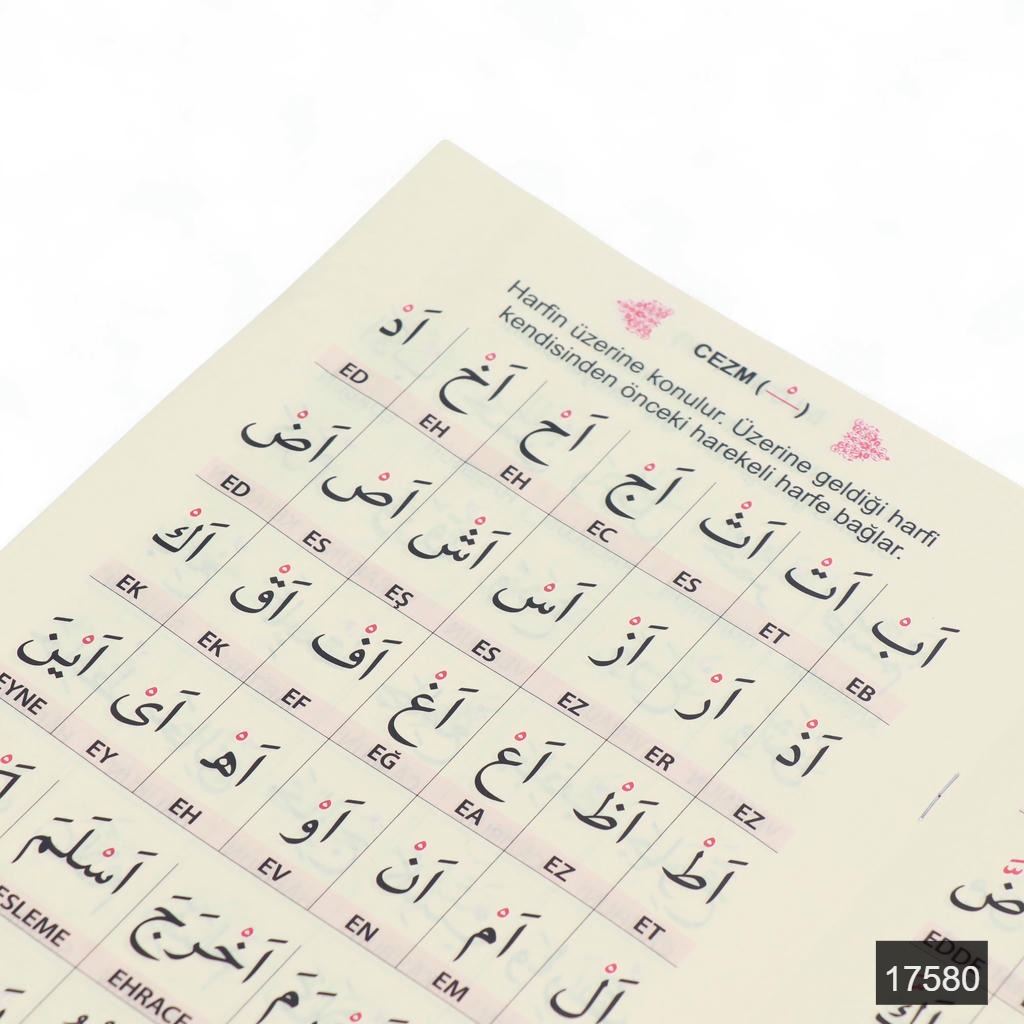 CEZM ( ْ )
Harfin üzerine konulur. Üzerine geldiği harfi
kendisinden önceki harekeli harfe bağlar.
اَبْ اَتْ اَثْ اَجْ اَحْ اَخْ اَدْ
EB ET ES EC EH EH ED
اَذْ اَرْ اَزْ اَسْ اَشْ اَصْ اَضْ
EZ ER EZ ES EŞ ES ED
اَطْ اَظْ اَعْ اَغْ اَفْ اَقْ اَكْ
ET EZ EA EĞ EF EK EK
اَلْ اَمْ اَنْ اَوْ اَهْ اَىْ اَيْنَ
EM EN EV EH EY EYNE
اَخْرَجَ اَسْلَمَ
EHRACE ESLEME
EDDE
17580